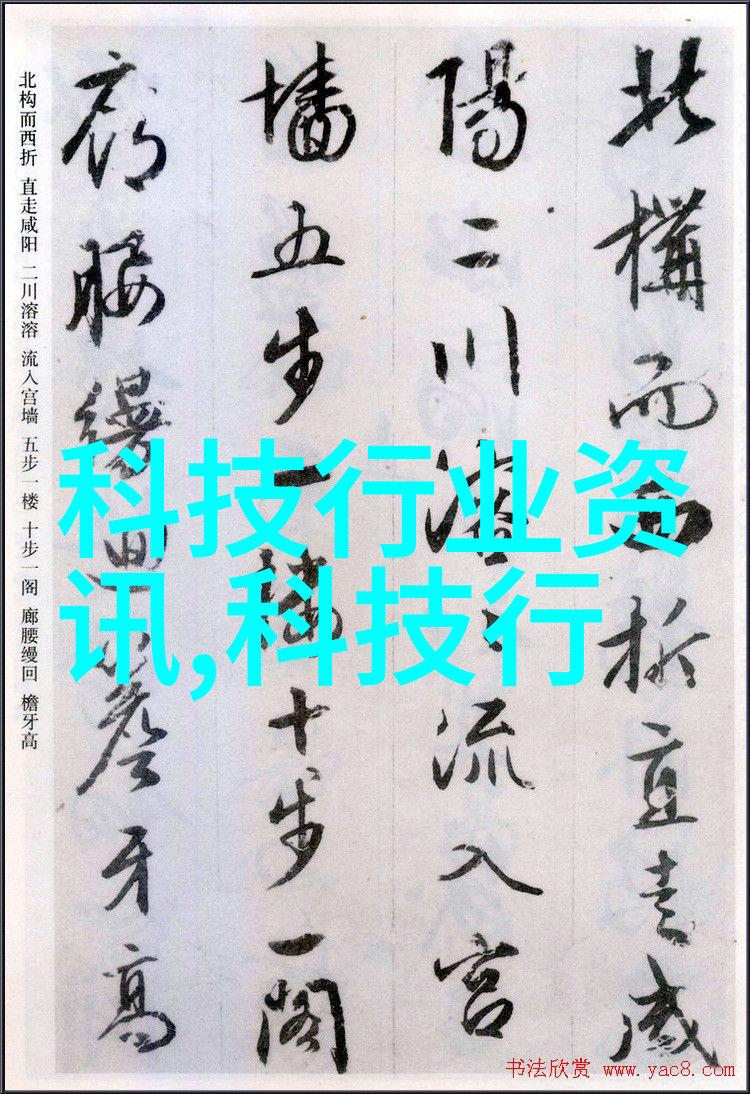 北構而西折直走咸
陽二川溶〻流入宮
墻五步一樓十步一閣
廊腰縵迴簷牙高
北构而西折 直走咸阳 二川溶溶 流入宫墙 五步一楼 十步一阁 廊腰缦回 檐牙高
科技行业资
讯,科技行
书法欣赏 www.yac8.com